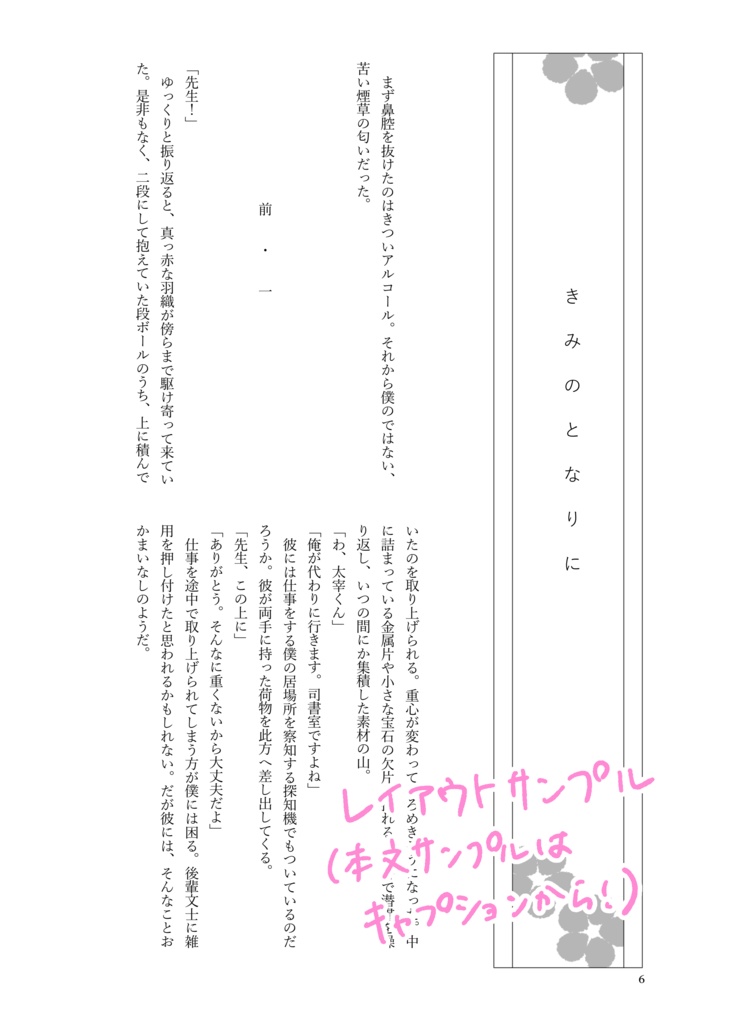 きみのとなりに
まず鼻腔を抜けたのはきついアルコール。それから僕のではない、
苦い煙草の匂いだった。
前・一
「先生！」
ゆっくりと振り返ると、真っ赤な羽織が傍らまで駆け寄って来てい
た。是非もなく、二段にして抱えていた段ボールのうち、上に積んで
いたのを取り上げられる。重心が変わって ろめき うになっ 。中
に詰まっている金属片や小さな宝石の欠片 れる で潜
り返し、いつの間にか集積した素材の山。
「わ、太宰くん」
「俺が代わりに行きます。司書室ですよね」
彼には仕事をする僕の居場所を察知する探知機でもついているのだ
ろうか。彼が両手に持った荷物を此方へ差し出してくる。
「先生、この上に」
「ありがとう。そんなに重くないから大丈夫だよ」
仕事を途中で取り上げられてしまう方が僕には困る。後輩文士に雑
用を押し付けたと思われるかもしれない。だが彼には、そんなことお
かまいなしのようだ。
レイアウトサンプル
(本文サンプルは
キャプションから！)
6